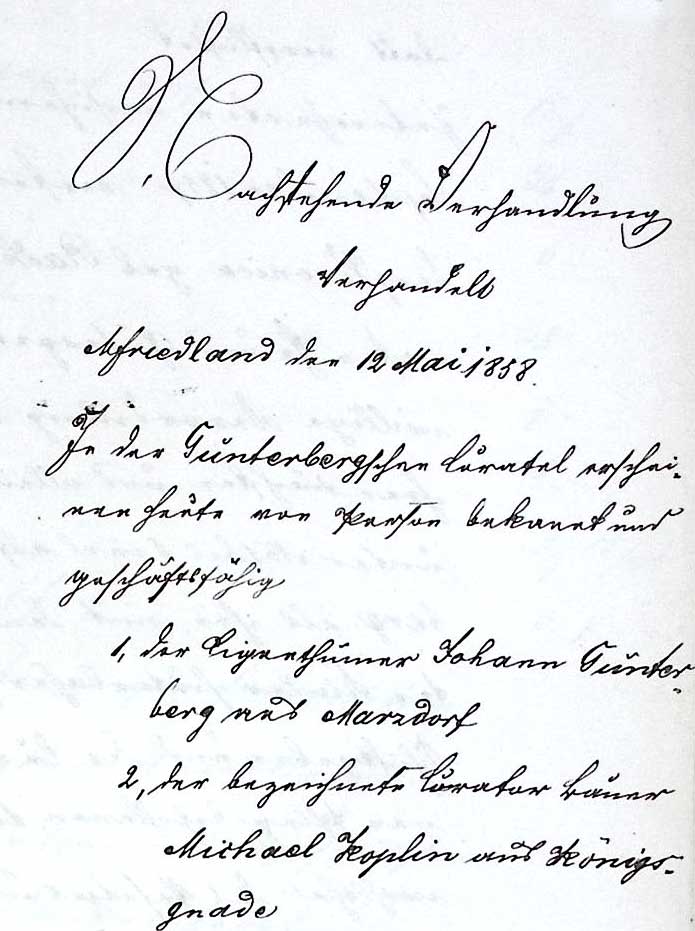 Nachstehende Verhandlung
Verhandelt
Mfriedland den 12 Mai 1858.
In der Günterbergschen Curatel erschei-
nen heute von Person bekannt und
geschäftsfähig
1, der Eigenthümer Johann Günter-
berg aus Marzdorf
2, der bezeichnete Curator Bauer
Michael Koplin aus Königs-
gnade